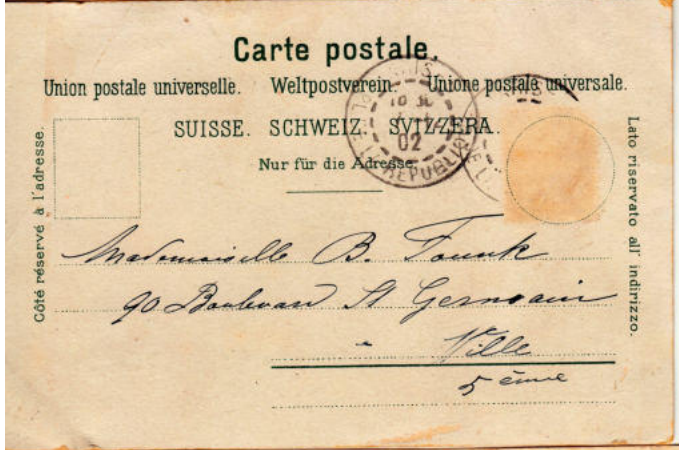 Carte postale.
Union postale universelle. Weltpostverein. Unione postale universale.
SUISSE. SCHWEIZ. SVIZZERA.
Nur für die Adresse.
Côté réservé à l'adresse.
Lato riservato all' indirizzo.
PARIS
02
REPUBLIQUE
Mademoiselle B. Founk
90 Boulevard St Germain
Ville
5 ème